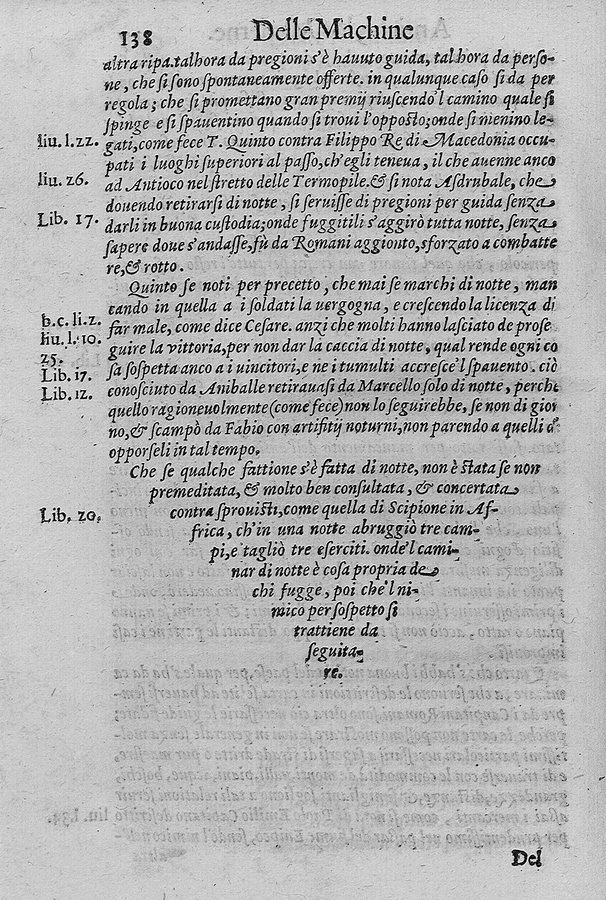 138 Delle Machine
altra ripa. talhora da pregioni s'è hauuto guida, talhora da perso-
ne, che si sono spontaneamente offerte. in qualunque caso si da per
regola; che si promettano gran premij riuscendo'l camino quale si
spinge e si spauentino quando si troui l'opposto; onde si menino le-
liu. l. 22. gati, come fece T. Quinto contra Filippo Re di Macedonia occu-
pati i luoghi superiori al passo, ch'egli teneua, il che auenne anco
liu. 26. ad Antioco nel stretto delle Termopile. & si nota Asdrubale, che
douendo retirarsi di notte, si seruisse di pregioni per guida senza
Lib. 17. darli in buona custodia; onde fuggitili s'aggirò tutta notte, senza
sapere doue s'andasse, fù da Romani aggionto, sforzato a combatte
re, & rotto.
Quinto se noti per precetto, che mai se marchi di notte, man
cando in quella a i soldati la vergogna, e crescendo la licenza di
b. c. li. 2. far male, come dice Cesare. anzi che molti hanno lasciato de prose
liu. l. 10. guire la vittoria, per non dar la caccia di notte, qual rende ogni co
25. sa sospetta anco a i uincitori, e ne i tumulti accresce'l spauento. ciò
Lib. 17. conosciuto da Aniballe retirauasi da Marcello solo di notte, perche
Lib. 12. quello ragioneuolmente (come fece) non lo seguirebbe, se non di gior
no, & scampò da Fabio con artifitij noturni, non parendo a quelli d'
opporseli in tal tempo.
Che se qualche fattione s'è fatta di notte, non è stata se non
premeditata, & molto ben consultata, & concertata
Lib. 20. contra sprouisti, come quella di Scipione in Af-
frica, ch'in una notte abruggiò tre cam-
pi, e tagliò tre eserciti. onde'l cami-
nar di notte è cosa propria de
chi fugge, poi che'l ni-
mico per sospetto si
trattiene da
seguita-
re.
Del